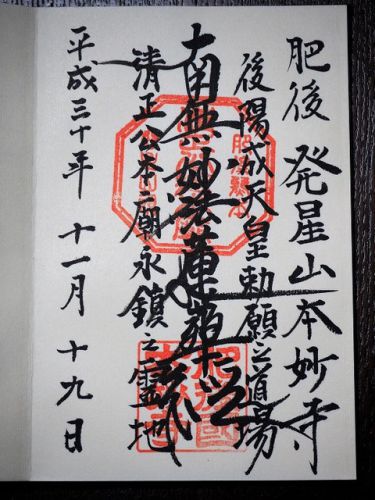 肥後 発星山本妙寺
後陽成天皇勅願之道場
南無妙法蓮華経
清正公本廟永鎮之霊地
平成三十年 十一月 十九日
肥後熊本